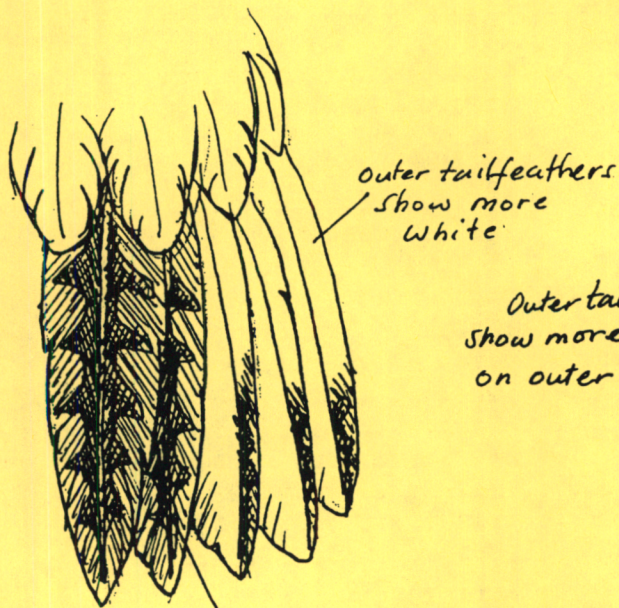 outer tailfeathers
show more
white
Outer ta
show more
on outer